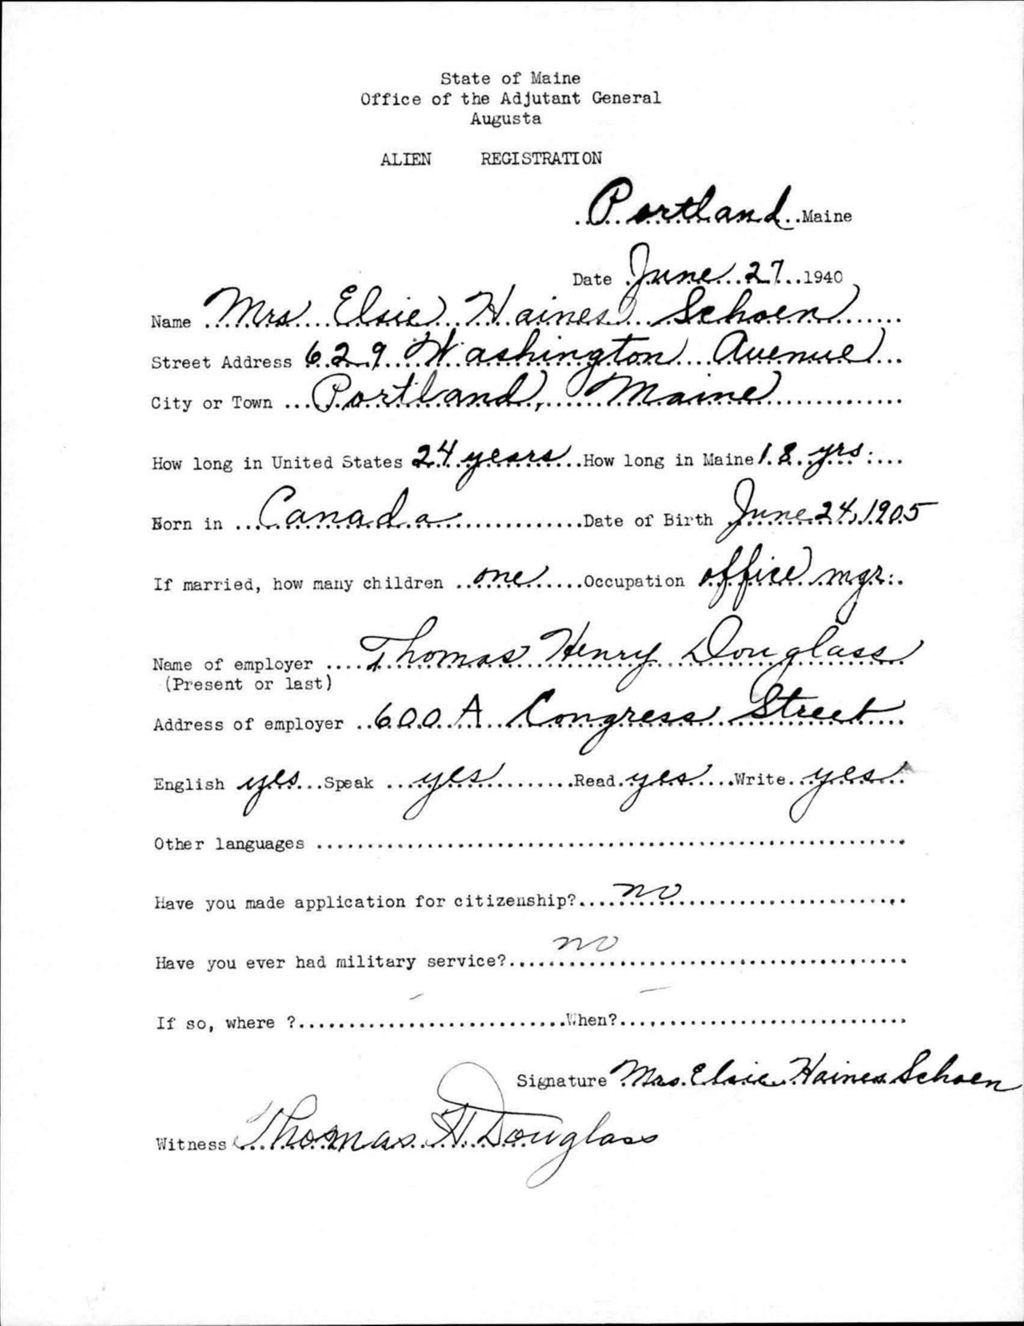 State of Maine
Office of the Adjutant General
Augusta
ALIEN REGISTRATION
Portland Maine
Date June 27 1940
Name Mrs Elsie Haines Schoen
Street Address 629 Washington Avenue
City or Town Portland, Maine
How long in United States 24 years How long in Maine 18 yrs.
Born in Canada Date of Birth June 24, 1905
If married, how many children one Occupation office mgr.
Name of employer Thomas Henry Douglass
(Present or last)
Address of employer 600 A Congress Street
English yes Speak yes Read yes Write yes
Other languages
Have you made application for citizenship? no
Have you ever had military service? no
If so, where ? - When? -
Signature Mrs. Elsie Haines Schoen
Witness Thomas H Douglass